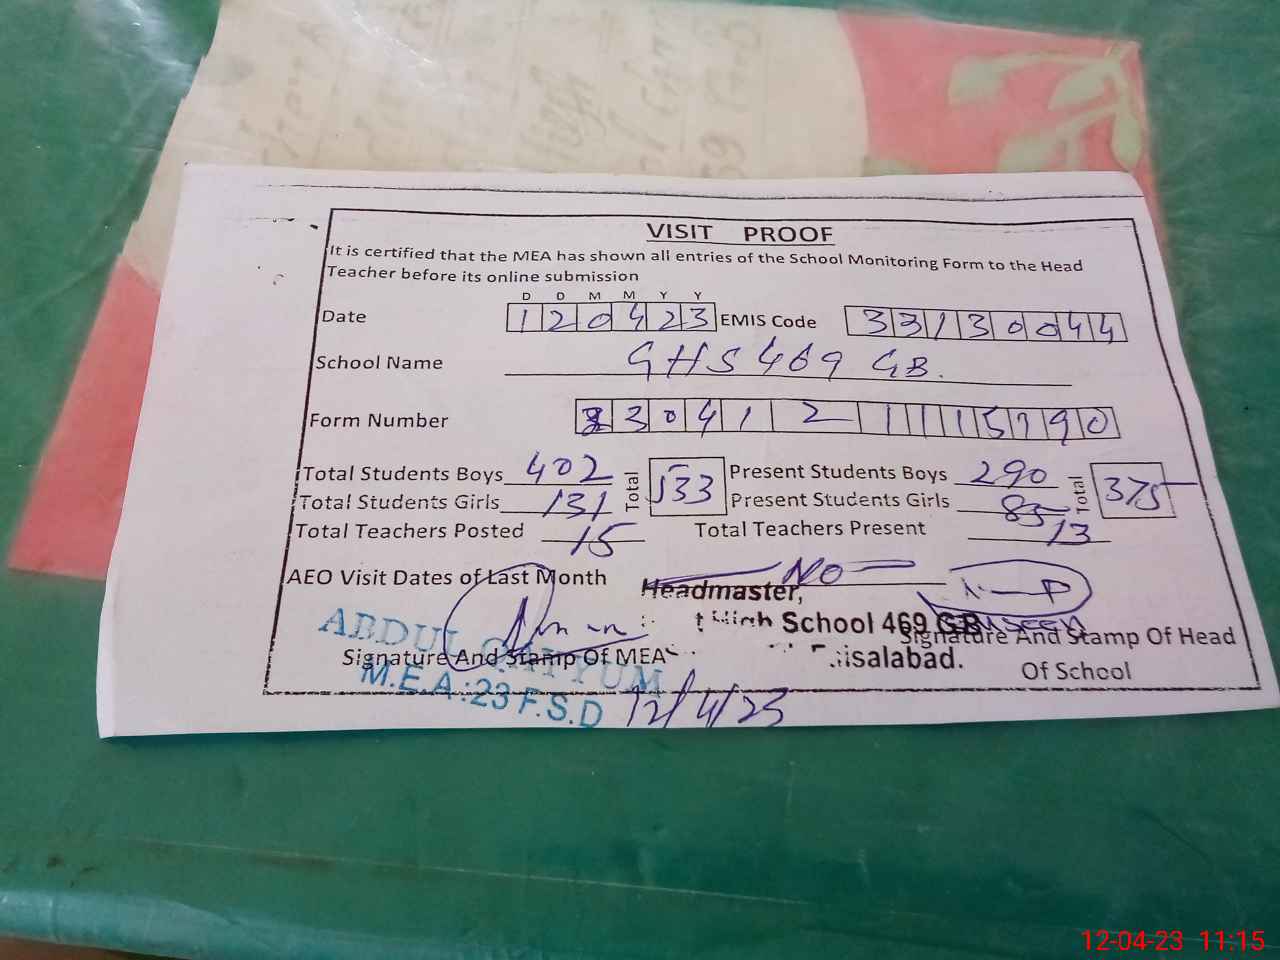 VISIT PROOF
It is certified that the MEA has shown all entries of the School Monitoring Form to the Head
Teacher before its online submission
D D M M Y Y
Date 120423 EMIS Code 33130044
School Name GHS 469 GB.
Form Number 2304121115790
Total Students Boys 402 Total 533 Present Students Boys 290 Total 375
Total Students Girls 131 Present Students Girls 85
Total Teachers Posted 15 Total Teachers Present 13
AEO Visit Dates of Last Month NO
Headmaster,
High School 469 GB
Faisalabad.
ABDUL QAYYUM
M.E.A :23 F.S.D
Signature And Stamp Of MEA
Signature And Stamp Of Head
Of School
12/4/23
12-04-23 11:15